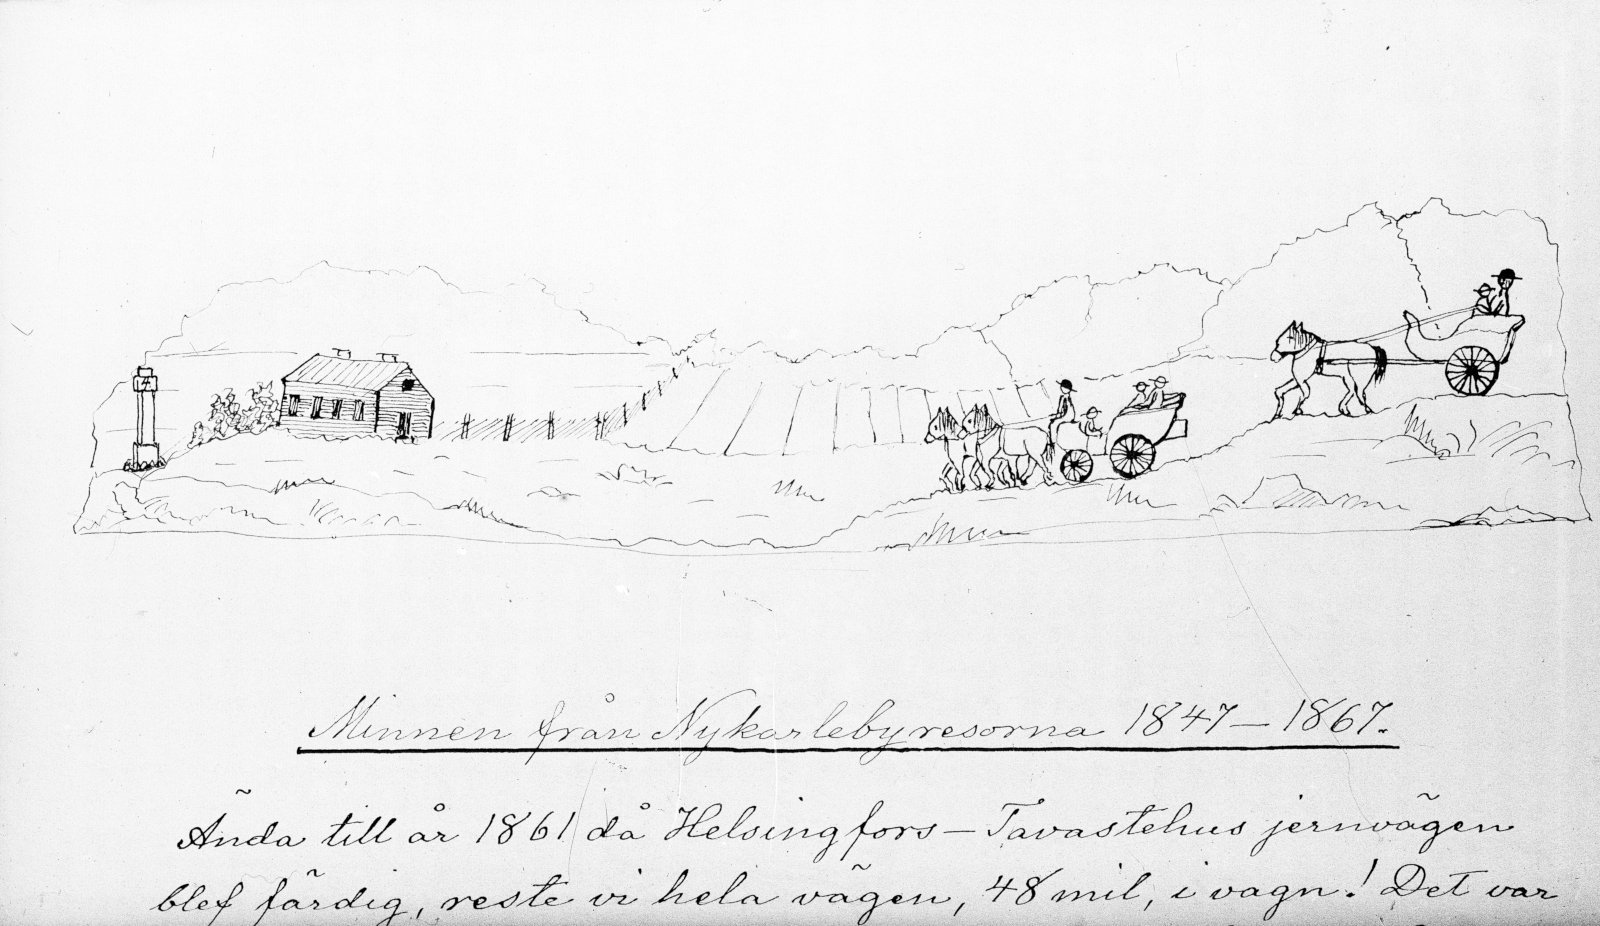 Minnen från Nykarlebyresorna 1847–1867.
Ända till år 1861 då Helsingfors–Tavastehus jernvägen
blef färdig, reste vi hela vägen, 48 mil, i vagn! Det var